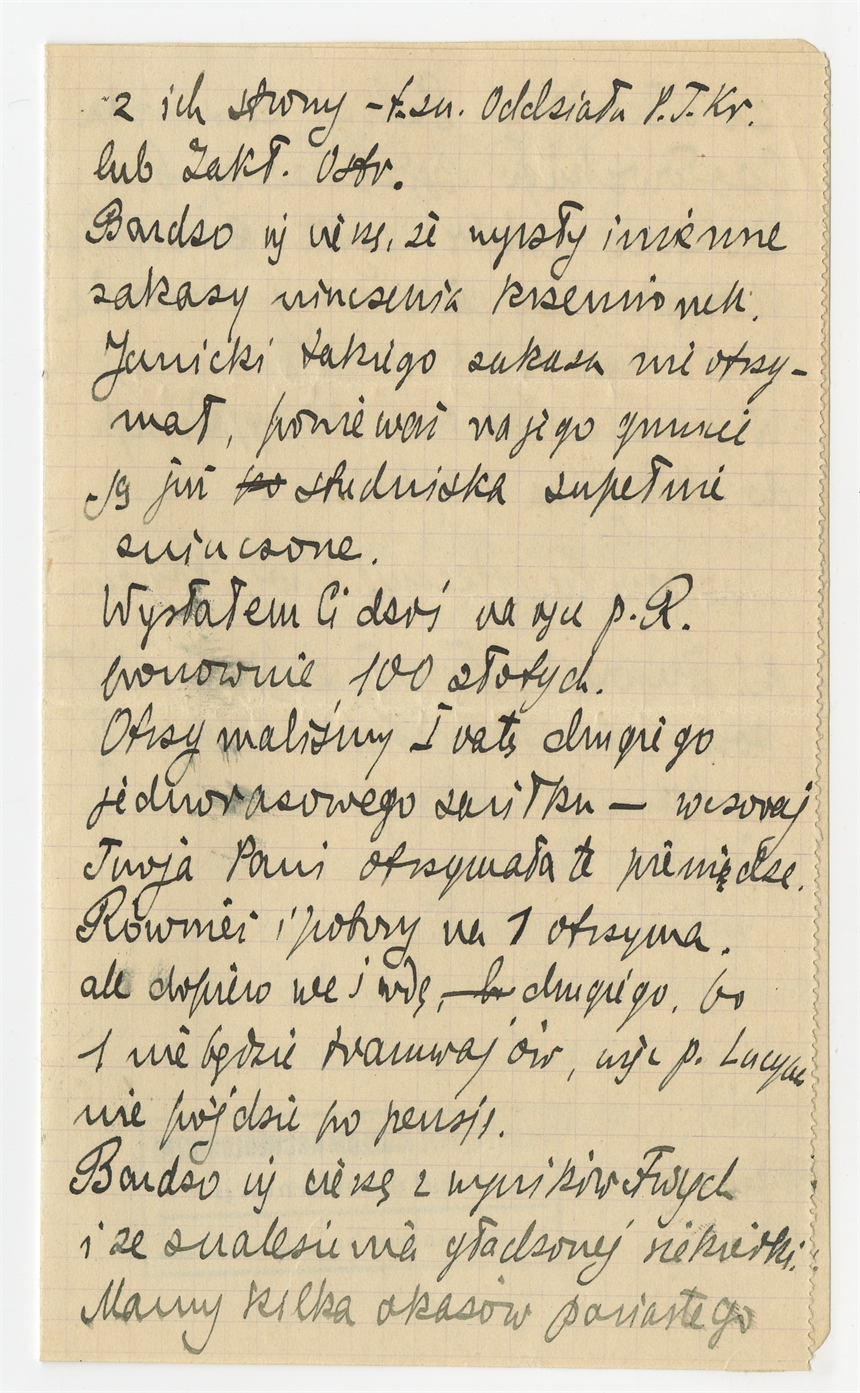 z ich strony – t.zn. Oddziału P.T.Kr.
lub Zakł. Ostr.
Bardzo się cieszę, że wyszły imienne
zakazy niszczenia krzemionek.
Janicki takiego zakazu nie otrzy-
mał, ponieważ na jego gruncie
są już po studniska zupełnie
zniszczone.
Wysłałem Ci dziś na ręce p. R.
ponownie 100 złotych.
Otrzymaliśmy I ratę drugiego
jednorazowego zasiłku — wczoraj
Twoja Pani otrzymała te pieniądze.
Również i pobory na 1 otrzyma.
ale dopiero we środę, drugiego, bo
1 nie będzie tramwajów, więc p. Lucyna
nie pójdzie po pensję.
Bardzo się cieszę z wyników Twych
i ze znalezienia gładzonej siekierki.
Mamy kilka okazów pasiastego